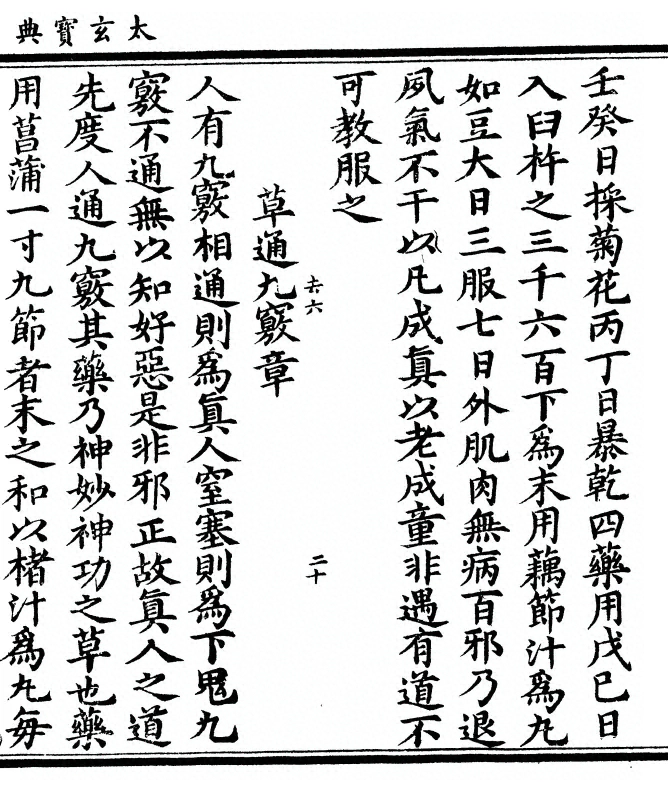 太玄寶典
壬癸日採菊花丙丁日暴乾四藥用戊巳日
入臼杵之三千六百下爲末用藕節汁爲丸
如豆大日三服七日外肌肉無病百邪乃退
夙氣不干以凡成眞以老成童非遇有道不
可教服之
去六
二十
草通九竅章
人有九竅相通則爲眞人窒塞則爲下鬼九
竅不通無以知好惡是非邪正故眞人之道
先度人通九竅其藥乃神妙神功之草也藥
用菖蒲一寸九節者末之和以楮汁爲丸每